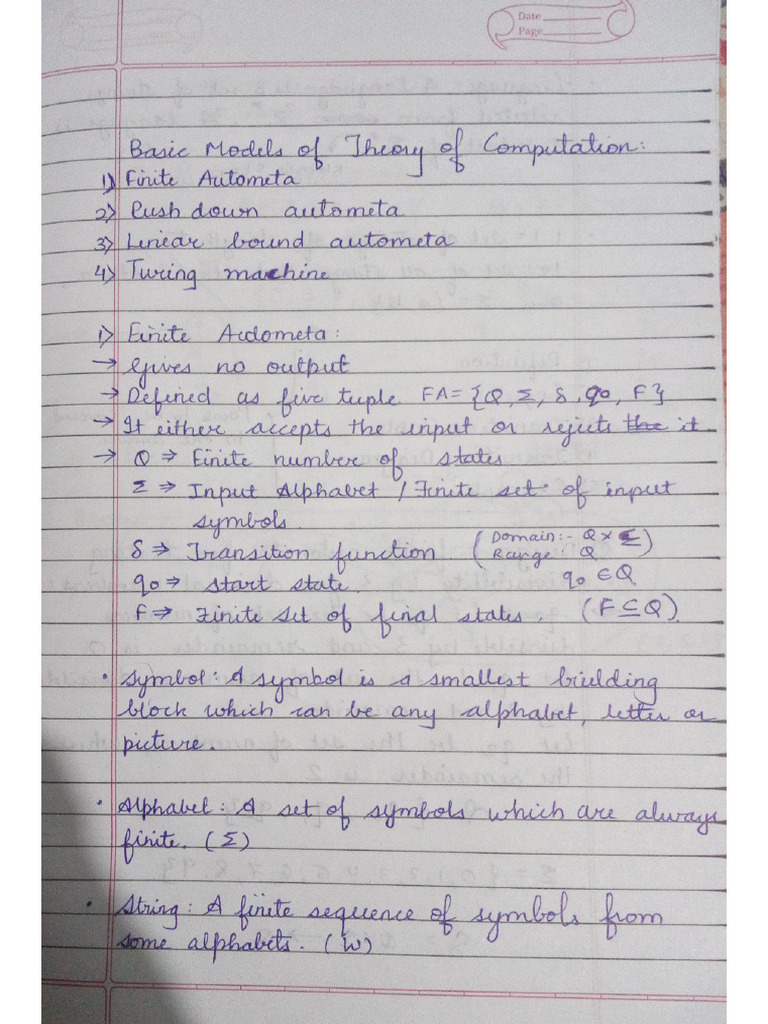 Date
Page
Basic Models of Theory of Computation:
1) Finite Autometa
2) Push down autometa
3) Linear bound autometa
4) Turing machine
1) Finite Autometa:
→ Gives no output
→ Defined as five tuple FA= {Q, Σ, δ, q0, F}
→ It either accepts the input or rejects the it
→ Q ⇒ Finite number of states
Σ ⇒ Input Alphabet / Finite set of input
symbols.
δ ⇒ Transition function (Domain:- Q × Σ)
Range: Q
q0 ⇒ start state. q0 ∈ Q
F ⇒ Finite set of final states. (F ⊆ Q)
• Symbol: A symbol is a smallest building
block which can be any alphabet, letter or
picture.
• Alphabet: A set of symbols which are always
finite. (Σ)
• String: A finite sequence of symbols from
some alphabets. (W)